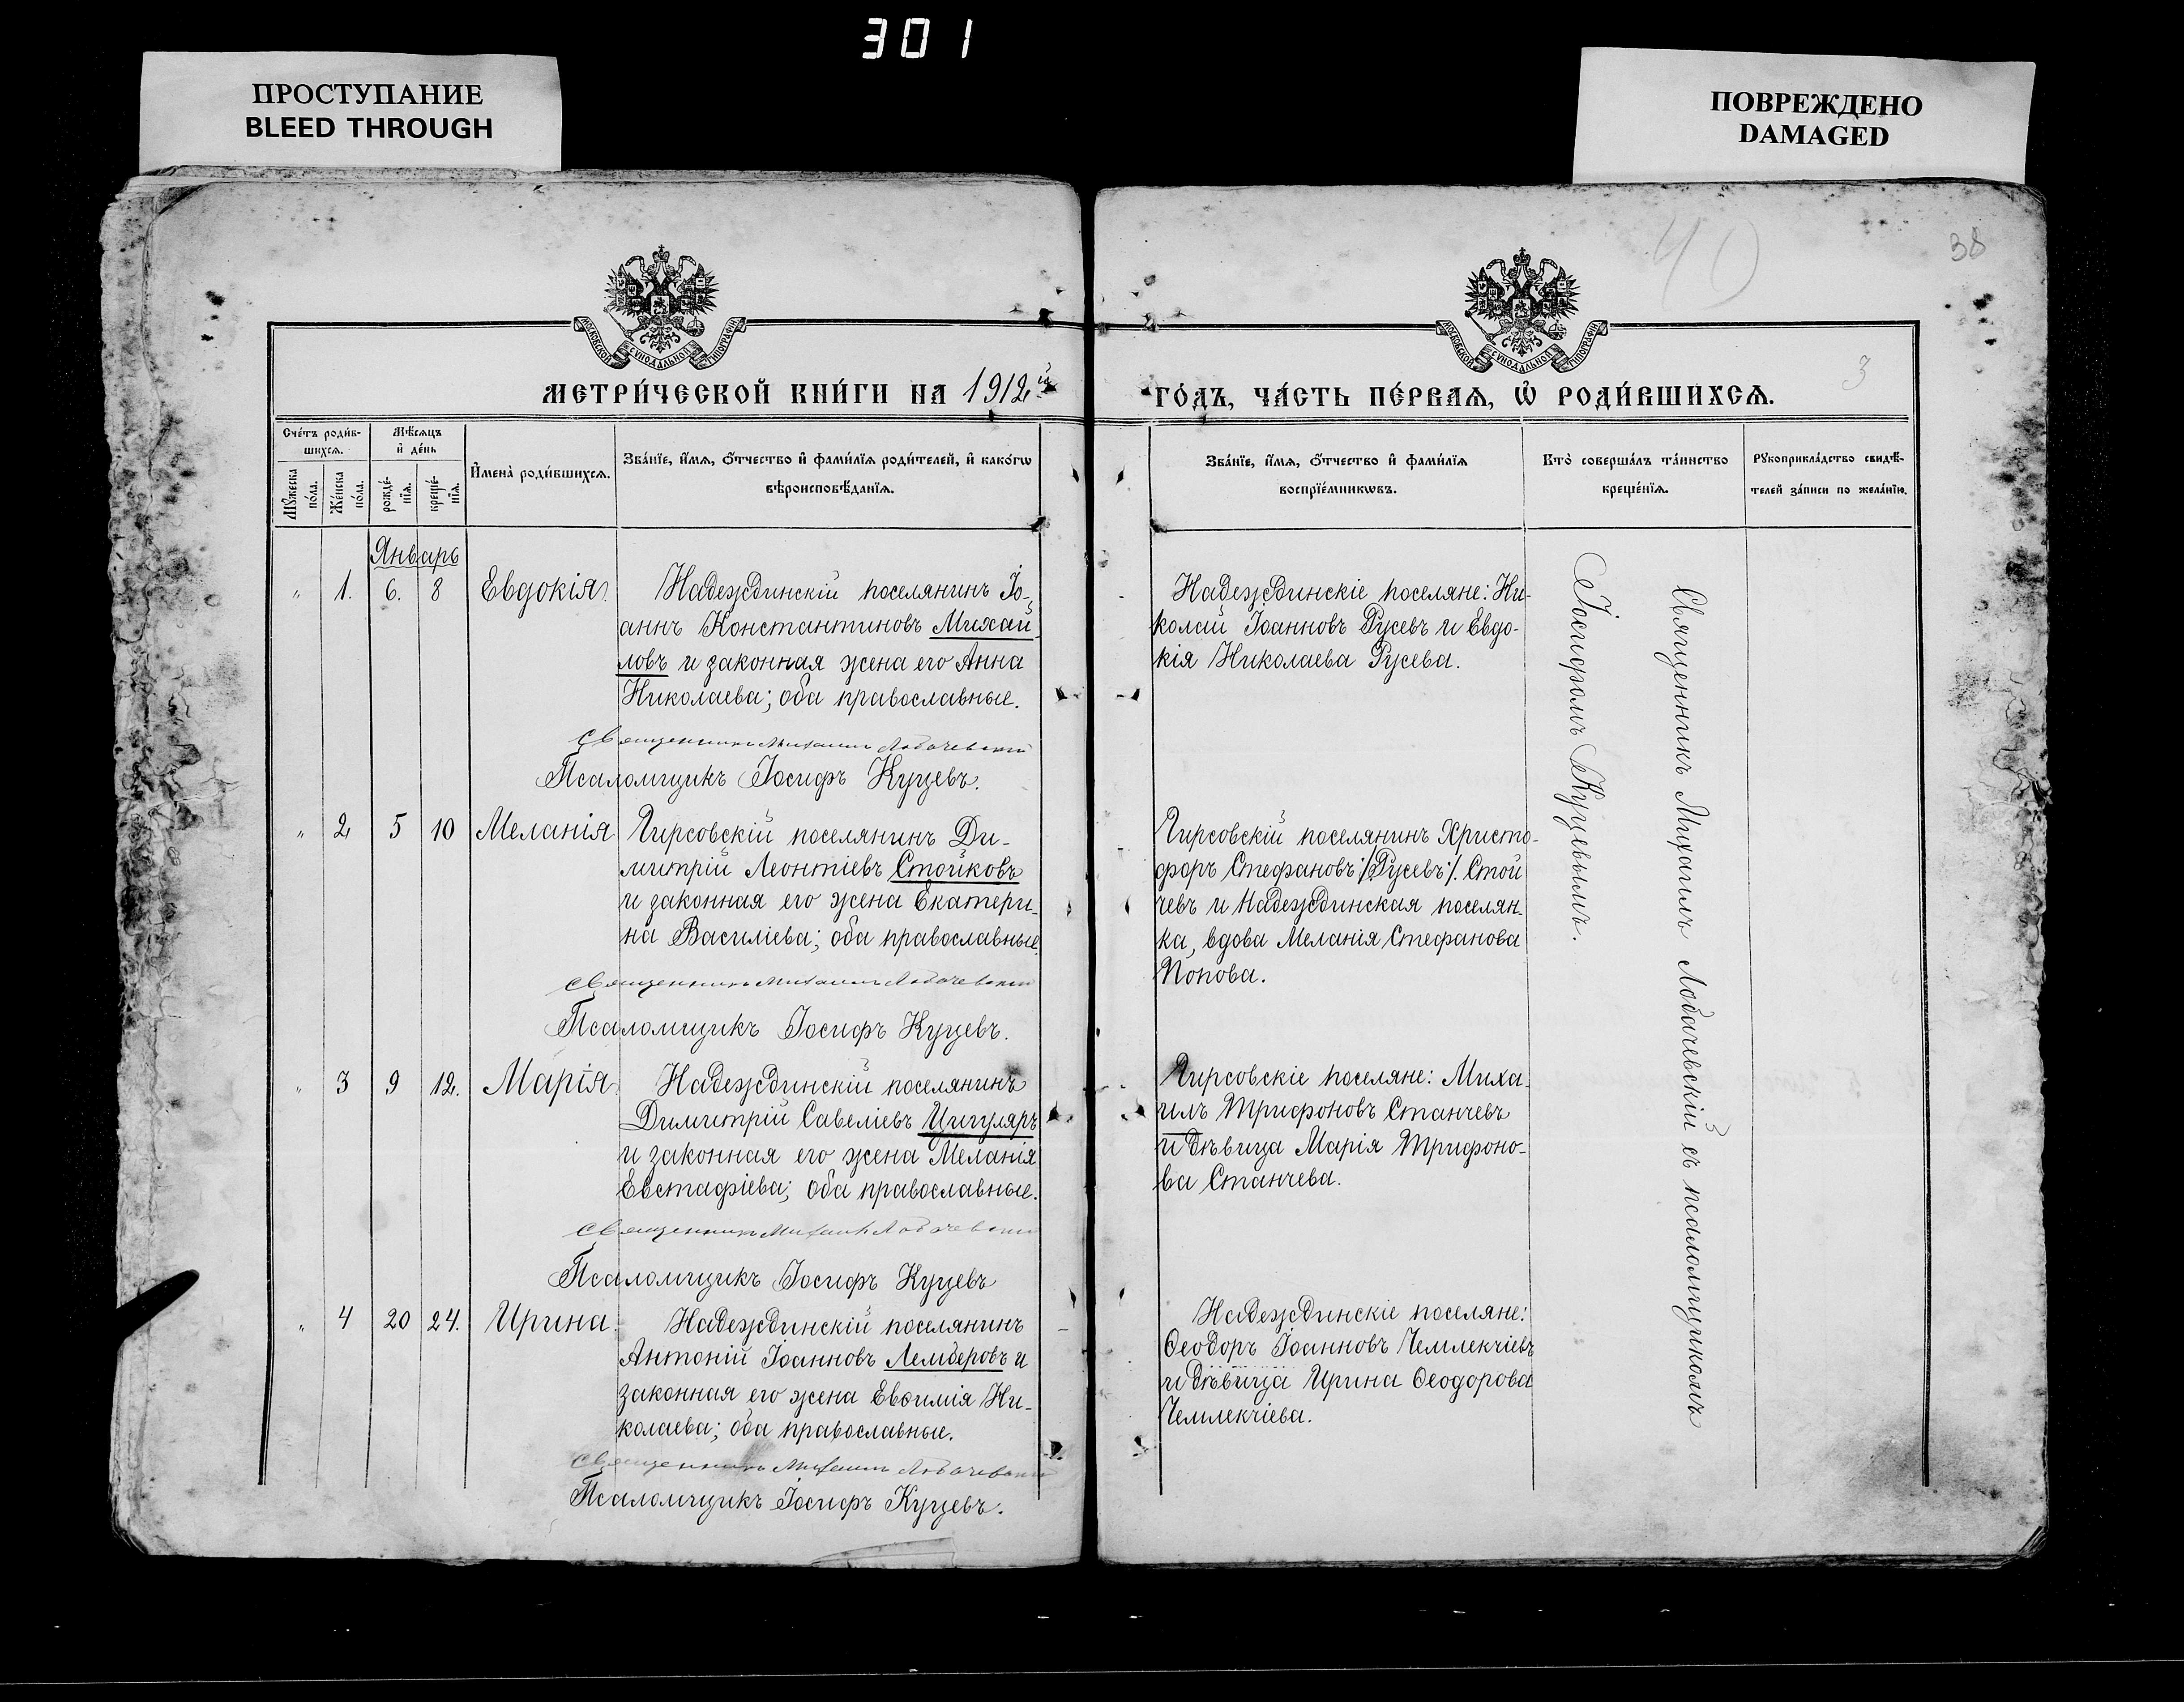 301
ПРОСТУПАНИЕ
BLEED THROUGH
ПОВРЕЖДЕНО
DAMAGED
40
38
3
МОСКОВСКОЙ СѴНОДАЛЬНОЙ ТИПОГРАФІИ
МОСКОВСКОЙ СѴНОДАЛЬНОЙ ТИПОГРАФІИ
МЕТРИ́ЧЕСКОЙ КНИ́ГИ НА 1912й
ГО́ДЪ, ЧА́СТЬ ПЕ́РВАѦ, Ѡ҆ РОДИ́ВШИХСѦ.
Сче́тъ роди́в-
шихсѧ.
Мꙋ́жеска
по́ла.
Же́нска
по́ла.
Мѣ́сѧцъ
и҆ де́нь
рожде́-
нїѧ.
креще́-
нїѧ.
И҆мена̀ роди́вшихсѧ.
Зва́нїе, и҆́мѧ, ѻ҆́тчество и҆ фами́лїѧ роди́телей, и҆ како́гѡ
вѣроисповѣ́данїѧ.
Зва́нїе, и҆́мѧ, ѻ҆́тчество и҆ фами́лїѧ
воспрїе́мникѡвъ.
Кто̀ соверша́лъ та́инство
креще́нїѧ.
Рꙋкоприкла́дство свидѣ́-
телей за́писи по жела́нїю.
Январь
" 1. 6. 8 Евдокія.
Надеждинскій поселянинъ Іо-
аннъ Константиновъ Михай
ловъ и законная жена его Анна
Николаева; оба православные.
Священникъ Михаилъ Лобачевскій
Псаломщикъ Іосифъ Куцевъ.
Надеждинскіе поселяне: Ни-
колай Іоанновъ Русевъ и Евдо-
кія Николаева Русева.
" 2 5 10 Меланія
Чирсовскій поселянинъ Ди-
митрій Леонтіевъ Стойковъ
и законная его жена Екатери-
на Василіева; оба православные.
Священникъ Михаилъ Лобачевскій
Псаломщикъ Іосифъ Куцевъ.
Чирсовскій поселянинъ Христо-
форъ Стефановъ /:Русевъ:/. Стой
чевъ и Надеждинская поселян-
ка, вдова Меланія Стефанова
Попова.
" 3 9 12. Марія
Надеждинскій поселянинъ
Димитрій Савеліевъ Цигуляръ
и законная его жена Меланія
Евстафіева; оба православные.
Священникъ Михаилъ Лобачевскій
Псаломщикъ Іосифъ Куцевъ
Чирсовскіе поселяне: Миха-
илъ Трифоновъ Станчевъ
и дѣвица Марія Трифоно-
ва Станчева.
" 4 20 24. Ирина.
Надеждинскій поселянинъ
Антоній Іоанновъ Лемберовъ и
законная его жена Евѳимія Ни-
колаева; оба православные.
Священникъ Михаилъ Лобачевскій
Псаломщикъ Іосифъ Куцевъ.
Надеждинскіе поселяне:
Ѳеодоръ Іоанновъ Чемлекчіевъ
и дѣвица Ирина Ѳеодорова
Чемлекчіева.
Священникъ Михаилъ Лобачевскій съ псаломщикомъ
Іосифомъ Куцевымъ.